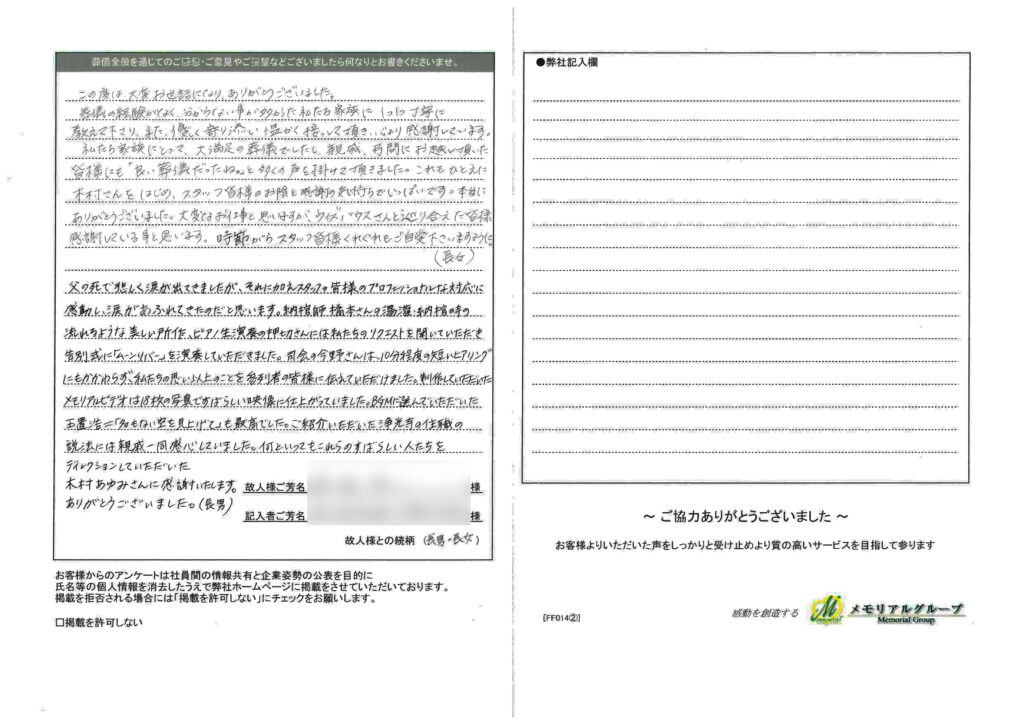 葬儀全般を通じてのご感想・ご意見やご要望などございましたら何なりとお書きくださいませ。
この度は大変お世話になり、ありがとうございました。
葬儀の経験がなく、分からない事が多かった私たち家族に1つ1つ丁寧に
教えて下さり、また、優しく寄り添い温かく接して頂き、心より感謝しています。
私たち家族にとって、大満足の葬儀でしたし、親戚、弔問にお越し頂いた
皆様にも「良い葬儀だったね。」と多くの声を掛けて頂きました。これもひとえに
木村さんをはじめ、スタッフ皆様のお陰と感謝の気持ちでいっぱいです。本当に
ありがとうございました。大変なお仕事と思いますが、ウィズハウスさんと巡り合えた皆様
感謝している事と思います。時節がらスタッフ皆様くれぐれもご自愛下さいますように。
(長女)
父の死で悲しく涙が出てきましたが、それに加えスタッフ皆様のプロフェッショナルな対応に
感動し、涙があふれてきたのだと思います。納棺師橋本さんの湯灌・納棺時の
流れるような美しい所作、ピアノ生演奏の押切さんには私たちのリクエストを聞いていただき
告別式に「ムーンリバー」を演奏していただきました。司会の今野さんは、10分程度の短いヒアリング
にもかかわらず、私たちの思い以上のことを参列者の皆様に伝えていただけました。制作していただいた
メモリアルビデオは18枚の写真ですばらしい映像に仕上がっていました。BGMに選んでいただいた
玉置浩二「名もない空を見上げて」も最高でした。ご紹介いただいた浄光寺の住職の
説法には親戚一同感心していました。何といってもこれらのすばらしい人たちを
ディレクションしていただいた
木村あゆみさんに感謝いたします。
ありがとうございました。(長男)
故人様ご芳名 様
記入者ご芳名 様
故人様との続柄 (長男・長女)
お客様からのアンケートは社員間の情報共有と企業姿勢の公表を目的に
氏名等の個人情報を消去したうえで弊社ホームページに掲載をさせていただいております。
掲載を拒否される場合には「掲載を許可しない」にチェックをお願いします。
□掲載を許可しない
●弊社記入欄
～ ご協力ありがとうございました ～
お客様よりいただいた声をしっかりと受け止めより質の高いサービスを目指して参ります
[FF014②]
感動を創造する
M
Memorial
メモリアルグループ
Memorial Group